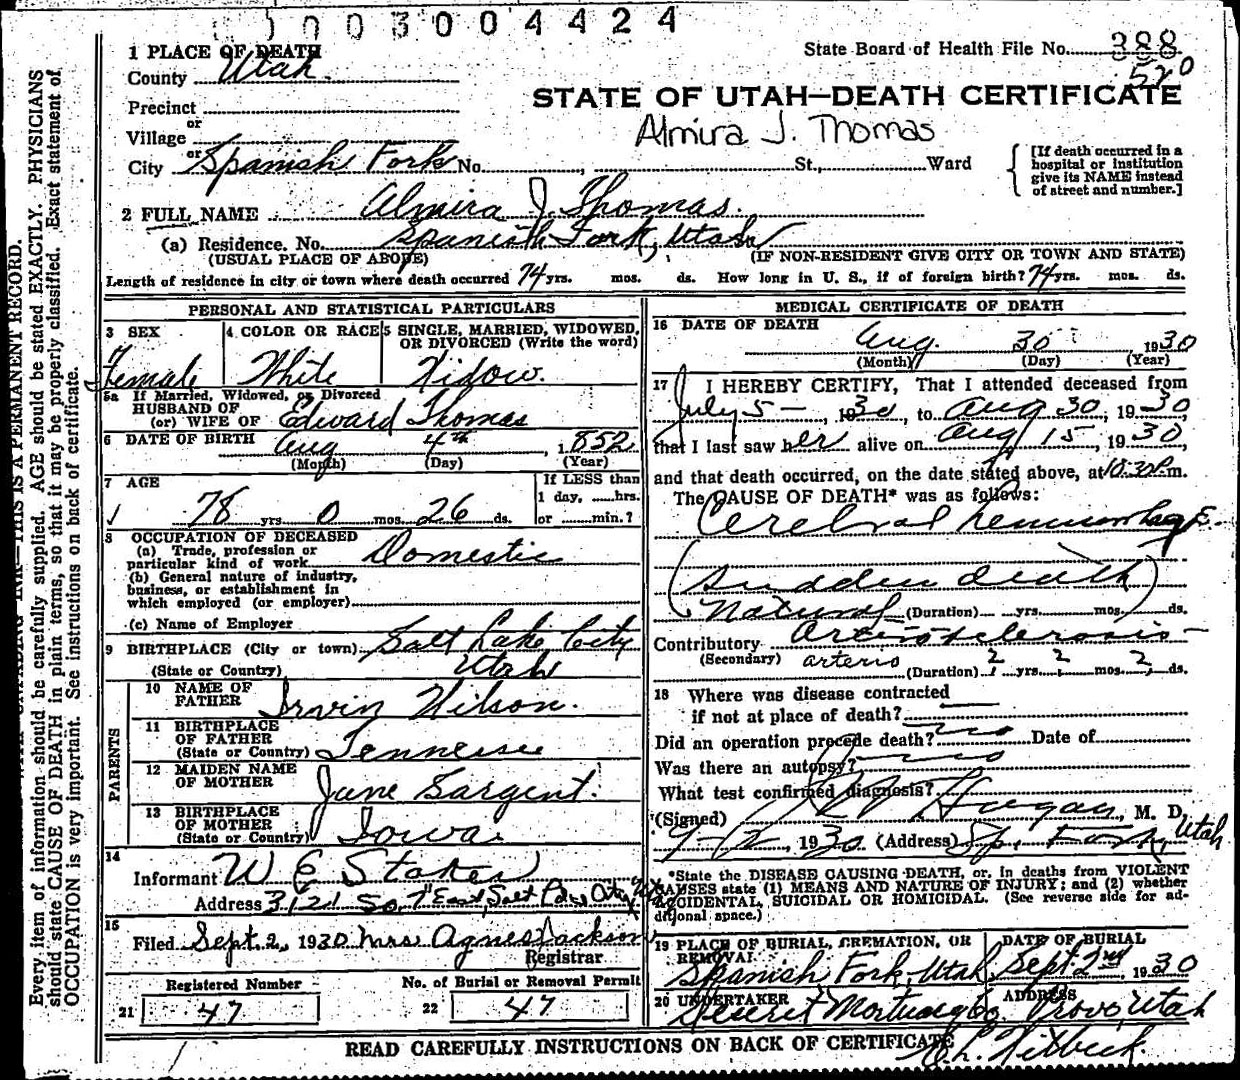 1003004424
1 PLACE OF DEATH
State Board of Health File No. 388
County Utah
520
Precinct
STATE OF UTAH—DEATH CERTIFICATE
or
Village
Almira J. Thomas
or
City Spanish Fork No. , St., Ward
[If death occurred in a
hospital or institution
give its NAME instead
of street and number.]
2 FULL NAME Almira J. Thomas.
(a) Residence. No. Spanish Fork, Utah
(USUAL PLACE OF ABODE) (IF NON-RESIDENT GIVE CITY OR TOWN AND STATE)
Length of residence in city or town where death occurred 74 yrs. mos. ds. How long in U. S., if of foreign birth? 74 yrs. mos. ds.
PERSONAL AND STATISTICAL PARTICULARS
3 SEX
Female
4 COLOR OR RACE
White
5 SINGLE, MARRIED, WIDOWED,
OR DIVORCED (Write the word)
Widow.
5a If Married, Widowed, or Divorced
HUSBAND OF
(or) WIFE OF Edward Thomas
6 DATE OF BIRTH Aug 4th, 1852
(Month) (Day) (Year)
7 AGE
78 yrs. 0 mos. 26 ds.
If LESS than
1 day, hrs.
or min.?
8 OCCUPATION OF DECEASED
(a) Trade, profession or
particular kind of work Domestic
(b) General nature of industry,
business, or establishment in
which employed (or employer)
(c) Name of Employer
9 BIRTHPLACE (City or town) Salt Lake City
(State or Country) Utah
PARENTS
10 NAME OF
FATHER Irvin Wilson.
11 BIRTHPLACE
OF FATHER
(State or Country) Tennessee
12 MAIDEN NAME
OF MOTHER Jane Sargent.
13 BIRTHPLACE
OF MOTHER
(State or Country) Iowa
14
Informant W E Stoker
Address 312 So. 7th East, Salt Lake City
15
Filed Sept. 2, 1930 Mrs. Agnes Jackson
Registrar
Registered Number
21 47
No. of Burial or Removal Permit
22 47
MEDICAL CERTIFICATE OF DEATH
16 DATE OF DEATH
Aug. 30 1930
(Month) (Day) (Year)
17 I HEREBY CERTIFY, That I attended deceased from
July 5 - , 1930, to Aug 30, 1930,
that I last saw her alive on Aug 15, 1930
and that death occurred, on the date stated above, at 10:30 P.m.
The CAUSE OF DEATH* was as follows:
Cerebral hemorrhage.
(sudden death)
Natural (Duration) yrs. mos. ds.
Contributory Arteriosclerosis -
(Secondary) arterio (Duration) ? yrs. ? mos. ? ds.
18 Where was disease contracted
if not at place of death?
Did an operation precede death? no Date of
Was there an autopsy? no
What test confirmed diagnosis?
(Signed) Hagan, M. D.
9-2, 1930 (Address) Sp. Fork, Utah
*State the DISEASE CAUSING DEATH, or, in deaths from VIOLENT
CAUSES state (1) MEANS AND NATURE OF INJURY; and (2) whether
ACCIDENTAL, SUICIDAL OR HOMICIDAL. (See reverse side for ad-
ditional space.)
19 PLACE OF BURIAL, CREMATION, OR
REMOVAL
Spanish Fork, Utah
DATE OF BURIAL
Sept 2nd, 1930
20 UNDERTAKER
Deseret Mortuary Co.
ADDRESS
Provo, Utah
READ CAREFULLY INSTRUCTIONS ON BACK OF CERTIFICATE
Every item of information should be carefully supplied. AGE should be stated EXACTLY. PHYSICIANS
should state CAUSE OF DEATH in plain terms, so that it may be properly classified. Exact statement of
OCCUPATION is very important. See instructions on back of certificate.
THIS IS A PERMANENT RECORD.